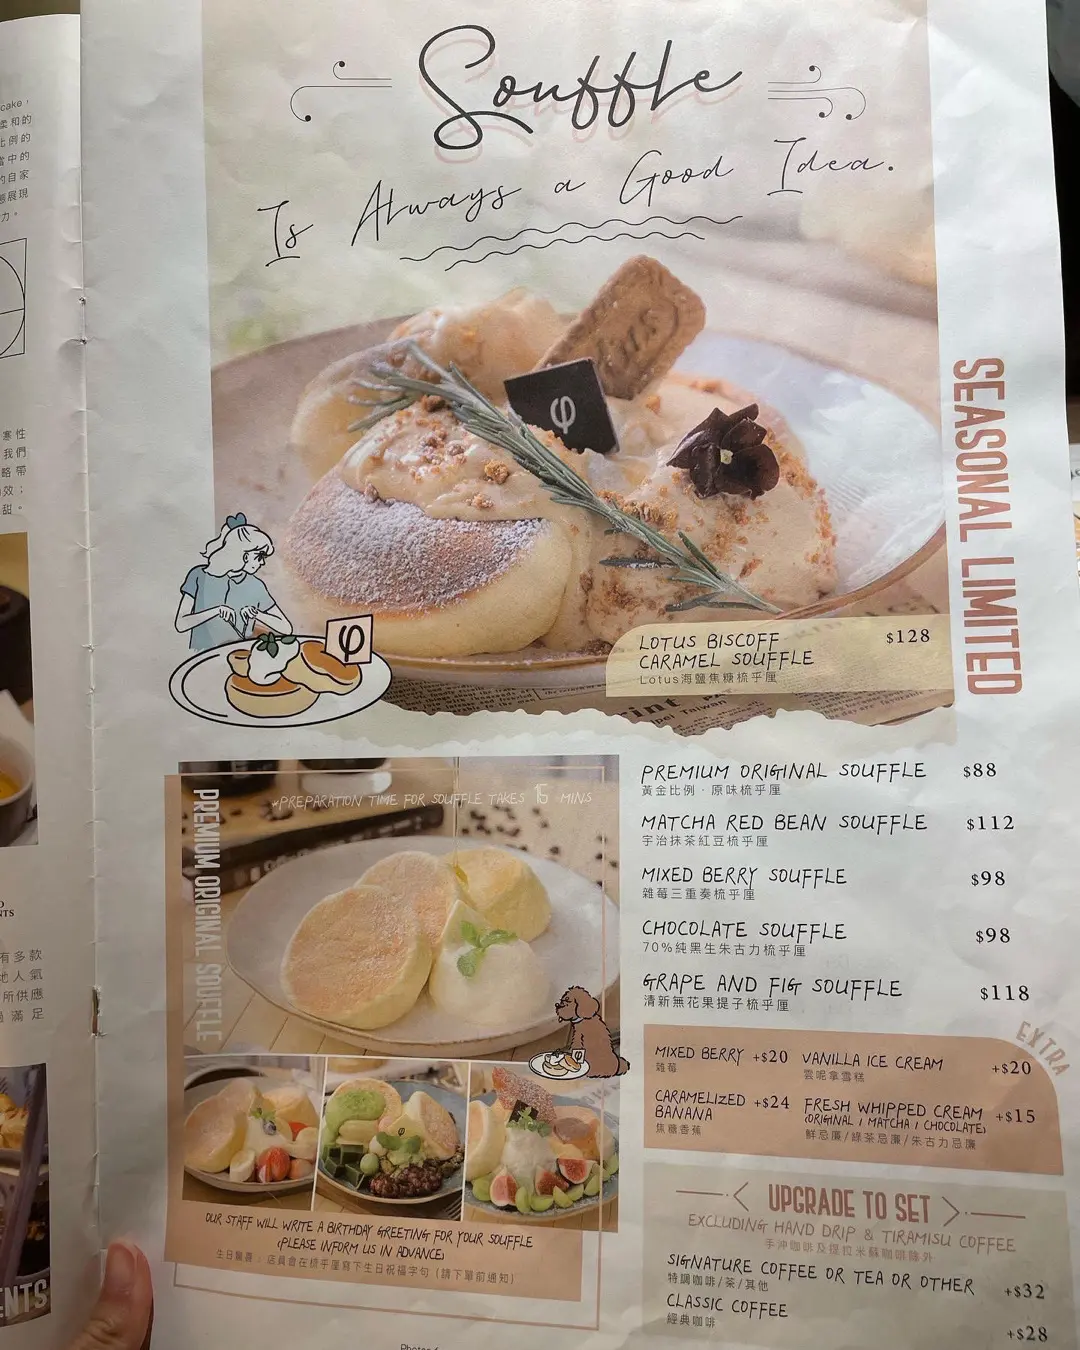 Souffle
Is Always a Good Idea.
SEASONAL LIMITED
LOTUS BISCOFF
CARAMEL SOUFFLE
$128
Lotus海鹽焦糖梳乎厘
PREMIUM ORIGINAL SOUFFLE
*PREPARATION TIME FOR SOUFFLE TAKES 15 MINS
PREMIUM ORIGINAL SOUFFLE $88
黃金比例．原味梳乎厘
MATCHA RED BEAN SOUFFLE $112
宇治抹茶紅豆梳乎厘
MIXED BERRY SOUFFLE $98
雜莓三重奏梳乎厘
CHOCOLATE SOUFFLE $98
70%純黑生朱古力梳乎厘
GRAPE AND FIG SOUFFLE $118
清新無花果提子梳乎厘
EXTRA
MIXED BERRY +$20
雜莓
VANILLA ICE CREAM +$20
雲呢拿雪糕
CARAMELIZED
BANANA +$24
焦糖香蕉
FRESH WHIPPED CREAM +$15
(ORIGINAL / MATCHA / CHOCOLATE)
鮮忌廉/綠茶忌廉/朱古力忌廉
OUR STAFF WILL WRITE A BIRTHDAY GREETING FOR YOUR SOUFFLE
(PLEASE INFORM US IN ADVANCE)
生日驚喜：店員會在梳乎厘寫下生日祝福字句（請下單前通知）
UPGRADE TO SET
EXCLUDING HAND DRIP & TIRAMISU COFFEE
手沖咖啡及提拉米蘇咖啡除外
SIGNATURE COFFEE OR TEA OR OTHER +$32
特調咖啡/茶/其他
CLASSIC COFFEE +$28
經典咖啡